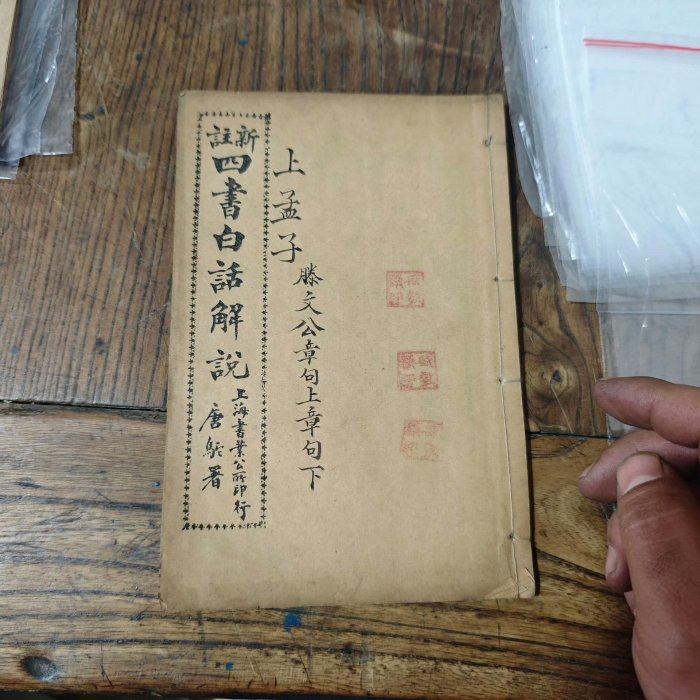 上孟子
滕文公章句上章句下
新註
四書白話解說
上海書業公所印行
唐駝署